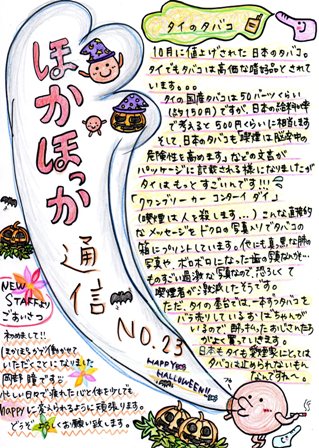 ほかほっか
通信
NO.23
HAPPY
HALLOWEEN!!
タイのタバコ
10月に値上げされた日本のタバコ。
タイでもタバコは高価な嗜好品とされ
ています。。。
タイの国産タバコは50バーツくらい
(約150円)ですが、日本の給料水準
で考えると500円くらいに相当します
そして、日本のタバコも「喫煙は脳卒中の
危険性を高めます」などの文章が
パッケージに記載される様になりましたが
タイはもっとすごいんです!!!
「クワンブリー カー コンターイ ダイ」
(喫煙は人を殺します…)こんな直接的
なメッセージをドクロの写真入りでタバコの
箱にプリントしています。他にも真っ黒な肺の
写真や ボロボロになった歯の写真なんか…
ものすごい過激な写真なので、恐ろしくて
喫煙者が激減したそうです。
ただ、タイの屋台では、一本ずつタバコを
バラ売りしているおばちゃんが
いるので 酔っ払ったおじさんたち
がよく買っていきます。
日本もタイも愛煙家にとっては
タバコは止められないもん
なんですネ〜。
NEW
STAFFより
ごあいさつ
初めまして!!
ほかほっかで働かせて
いただくことになりました
瞳です
忙しい日々で疲れた心と体を少しでも
Happyに変えられるように頑張ります。
どうぞよろしくお願い致します。